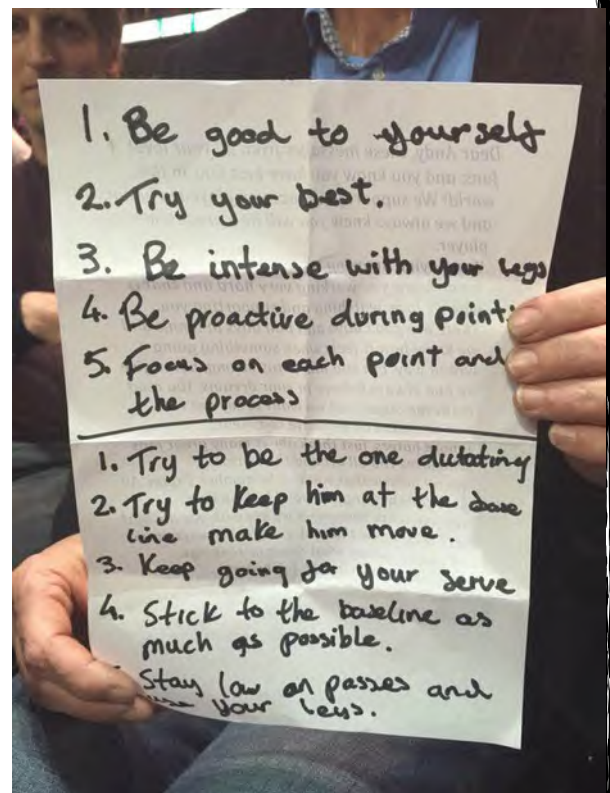 1. Be good to yourself
2. Try your best.
3. Be intense with your legs
4. Be proactive during point
5. Focus on each point and
the process
1. Try to be the one dictating
2. Try to keep him at the base
line make him move.
3. Keep going for your serve
4. Stick to the baseline as
much as possible.
Stay low on passes and
use your legs.